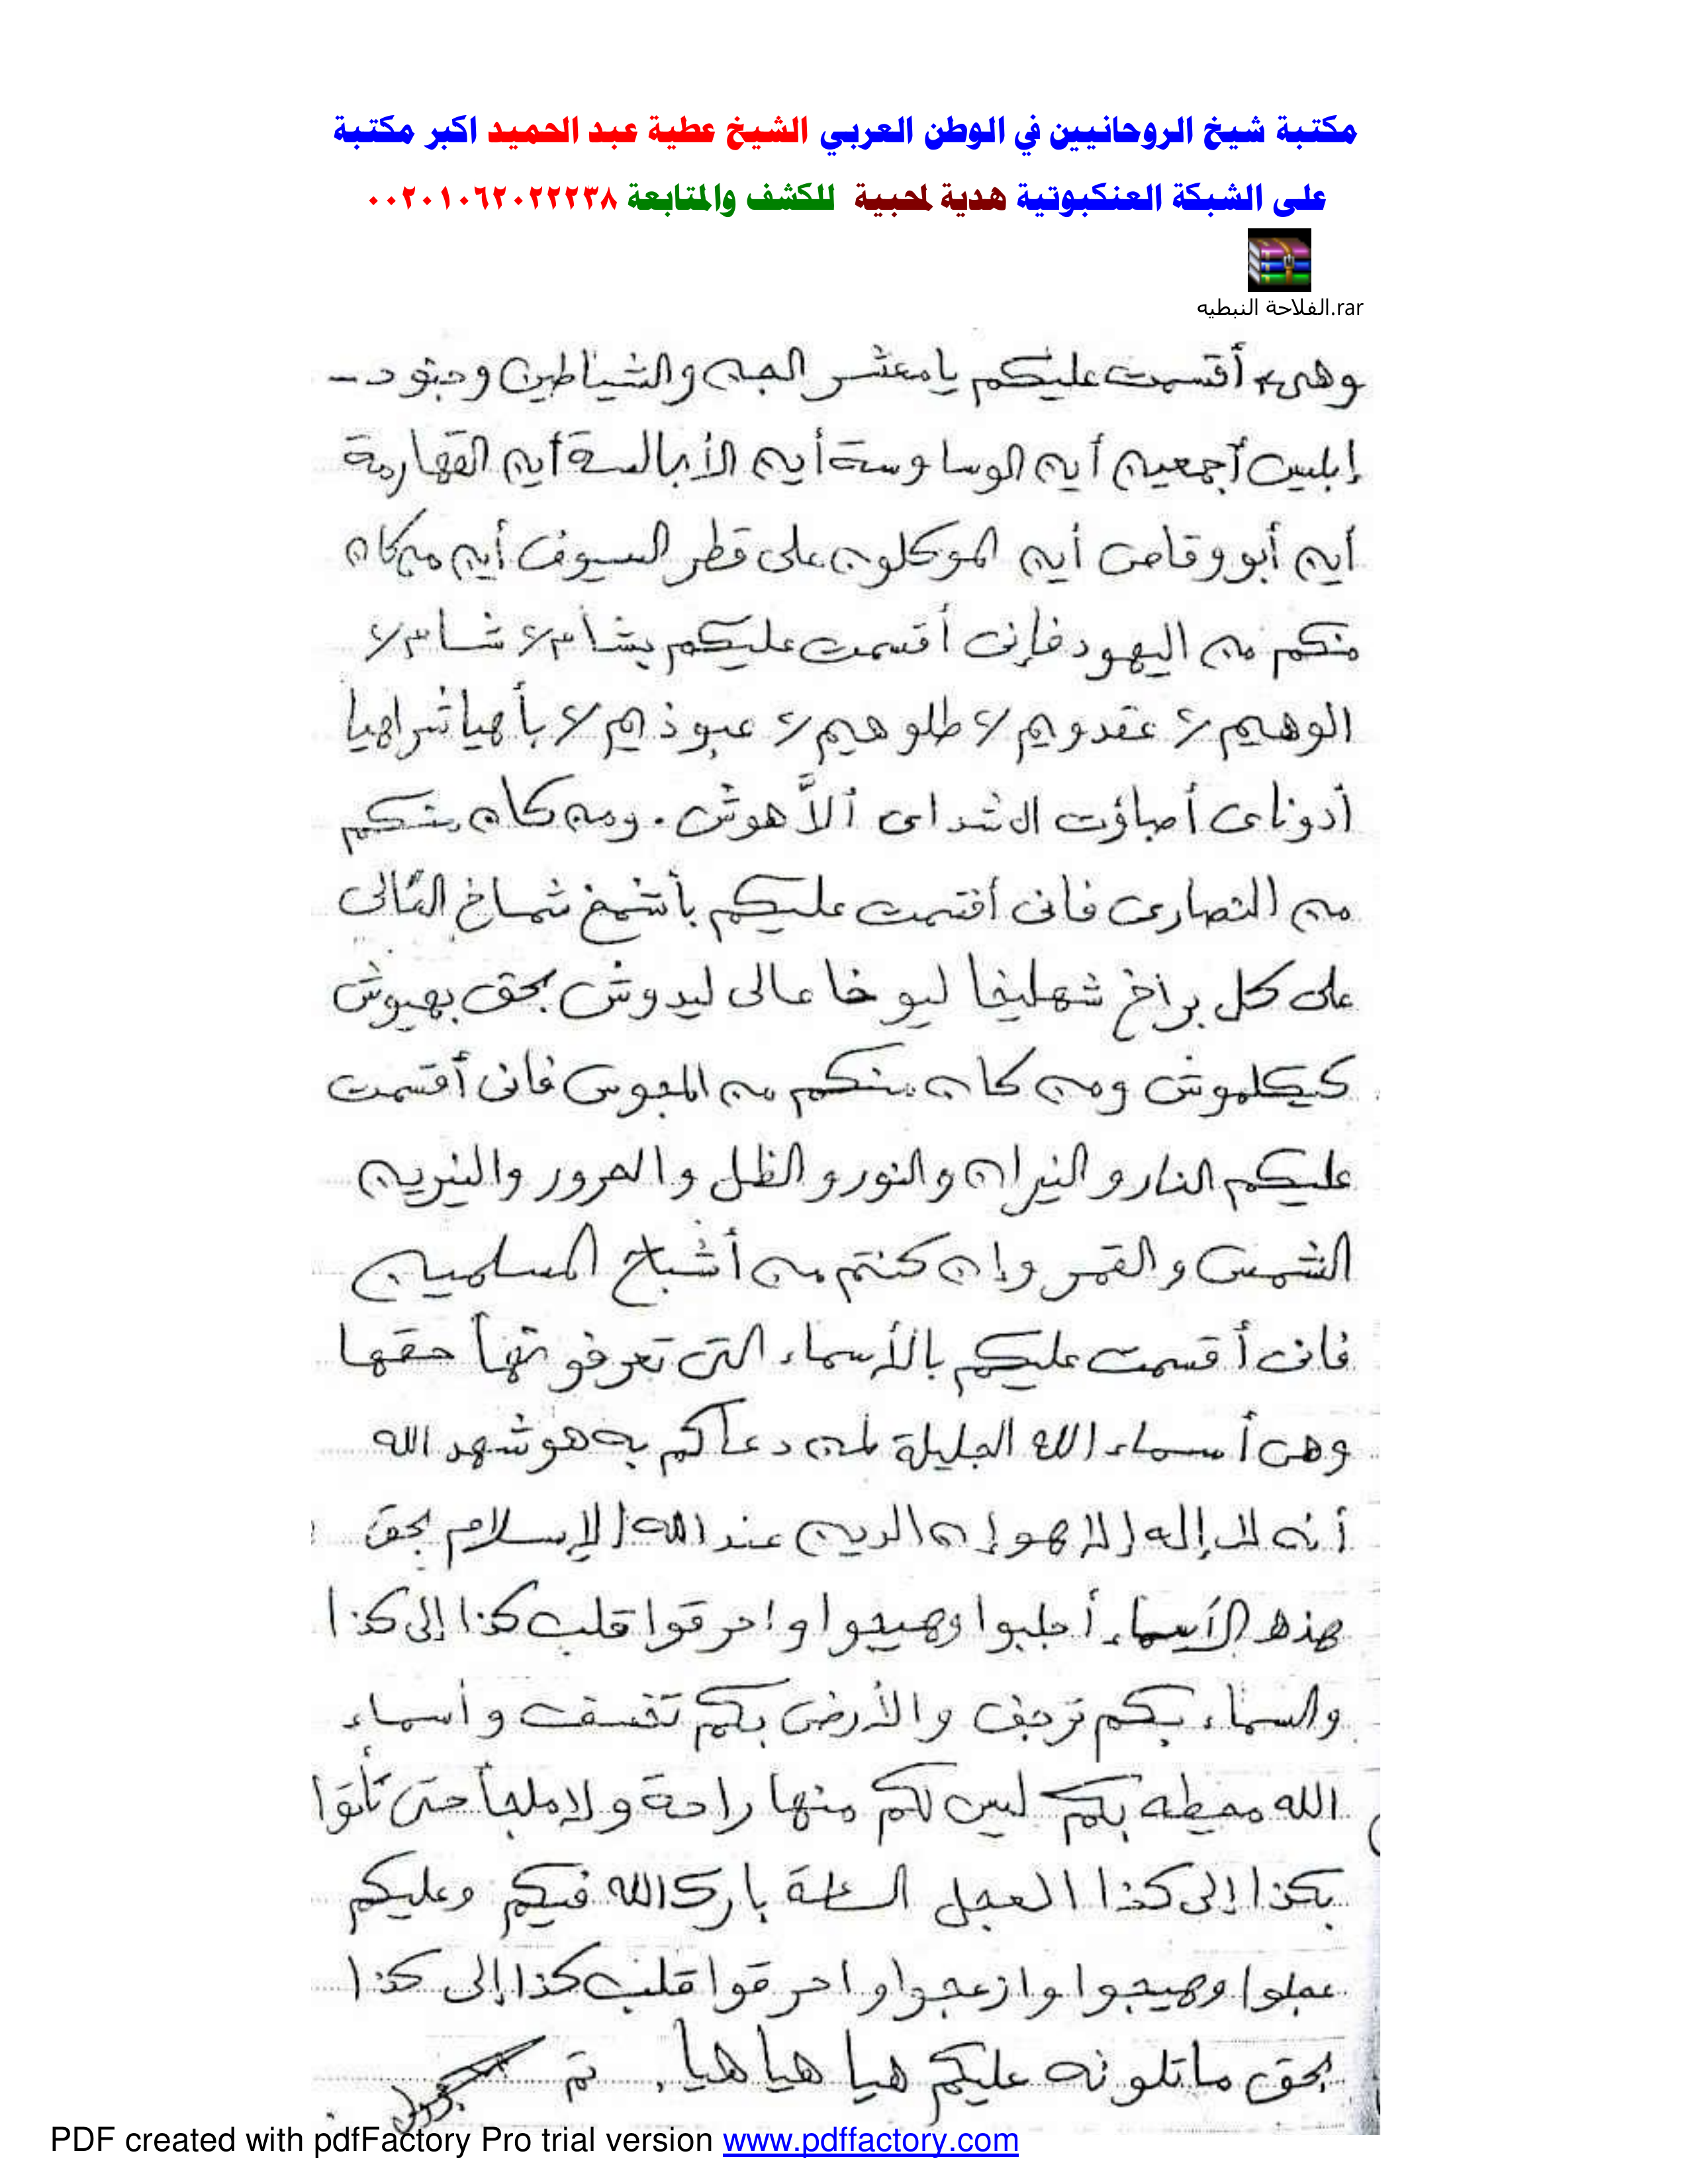 مكتبة شيخ الروحانيين في الوطن العربي الشيخ عطية عبد الحميد اكبر مكتبة
على الشبكة العنكبوتية هدية لمحبية للكشف والمتابعة ٠٠٢٠١٠٦٢٠٢٢٢٣٨
الفلاحة النبطيه.rar
وهى أقسمت عليكم يا معشر الجن والشياطين وجنود
إبليس أجمعين أين الوساوسة أين الأبالسة أين القهارمة
أين أبو وقاص أين الموكلون على قطر السيوف أين من كان
منكم من اليهود فإنى أقسمت عليكم بشا شا
الوهيم عقدويم طلوهيم عبوذيم بأهيا شراهيا
أدوناى أصباؤت ال شداى ألآ هوش . ومن كان منكم
من النصارى فانى أقتمت عليكم بأشمخ شماخ
على كل براخ شهليخا ليوخا عالى ليدوش بحق بهيوش
كيكلموش ومن كان منكم من المجوس فانى أقسمت
عليكم النار و النيران والنور و الظل و الحرور والنيرين
الشمس والقمر وإن كنتم من أشباخ المسلمين
فانى أقسمت عليكم بالأسماء التى حقها
وهى أسماء الله الجليلة لمن دعاكم به هو شهد الله
أنه لا إله إلا هو إن الدين عند الله الإسلام بحق
هذه الأسماء أجلبوا وهيجوا واحرقوا قلب كذا إلى كذا
والسماء بكم ترجف والأرض بكم تخسف وأسماء
الله محيطه بكم ليس لكم منها راحة ولا ملجأ حتى تأتوا
بكذا إلى كذا العجل بارك الله فيكم وعليكم
عجلوا وهيجوا وازعجوا واحرقوا قلب كذا إلى كذا
بحق ما تلوته عليكم هيا هيا هيا . تم
PDF created with pdfFactory Pro trial version www.pdffactory.com